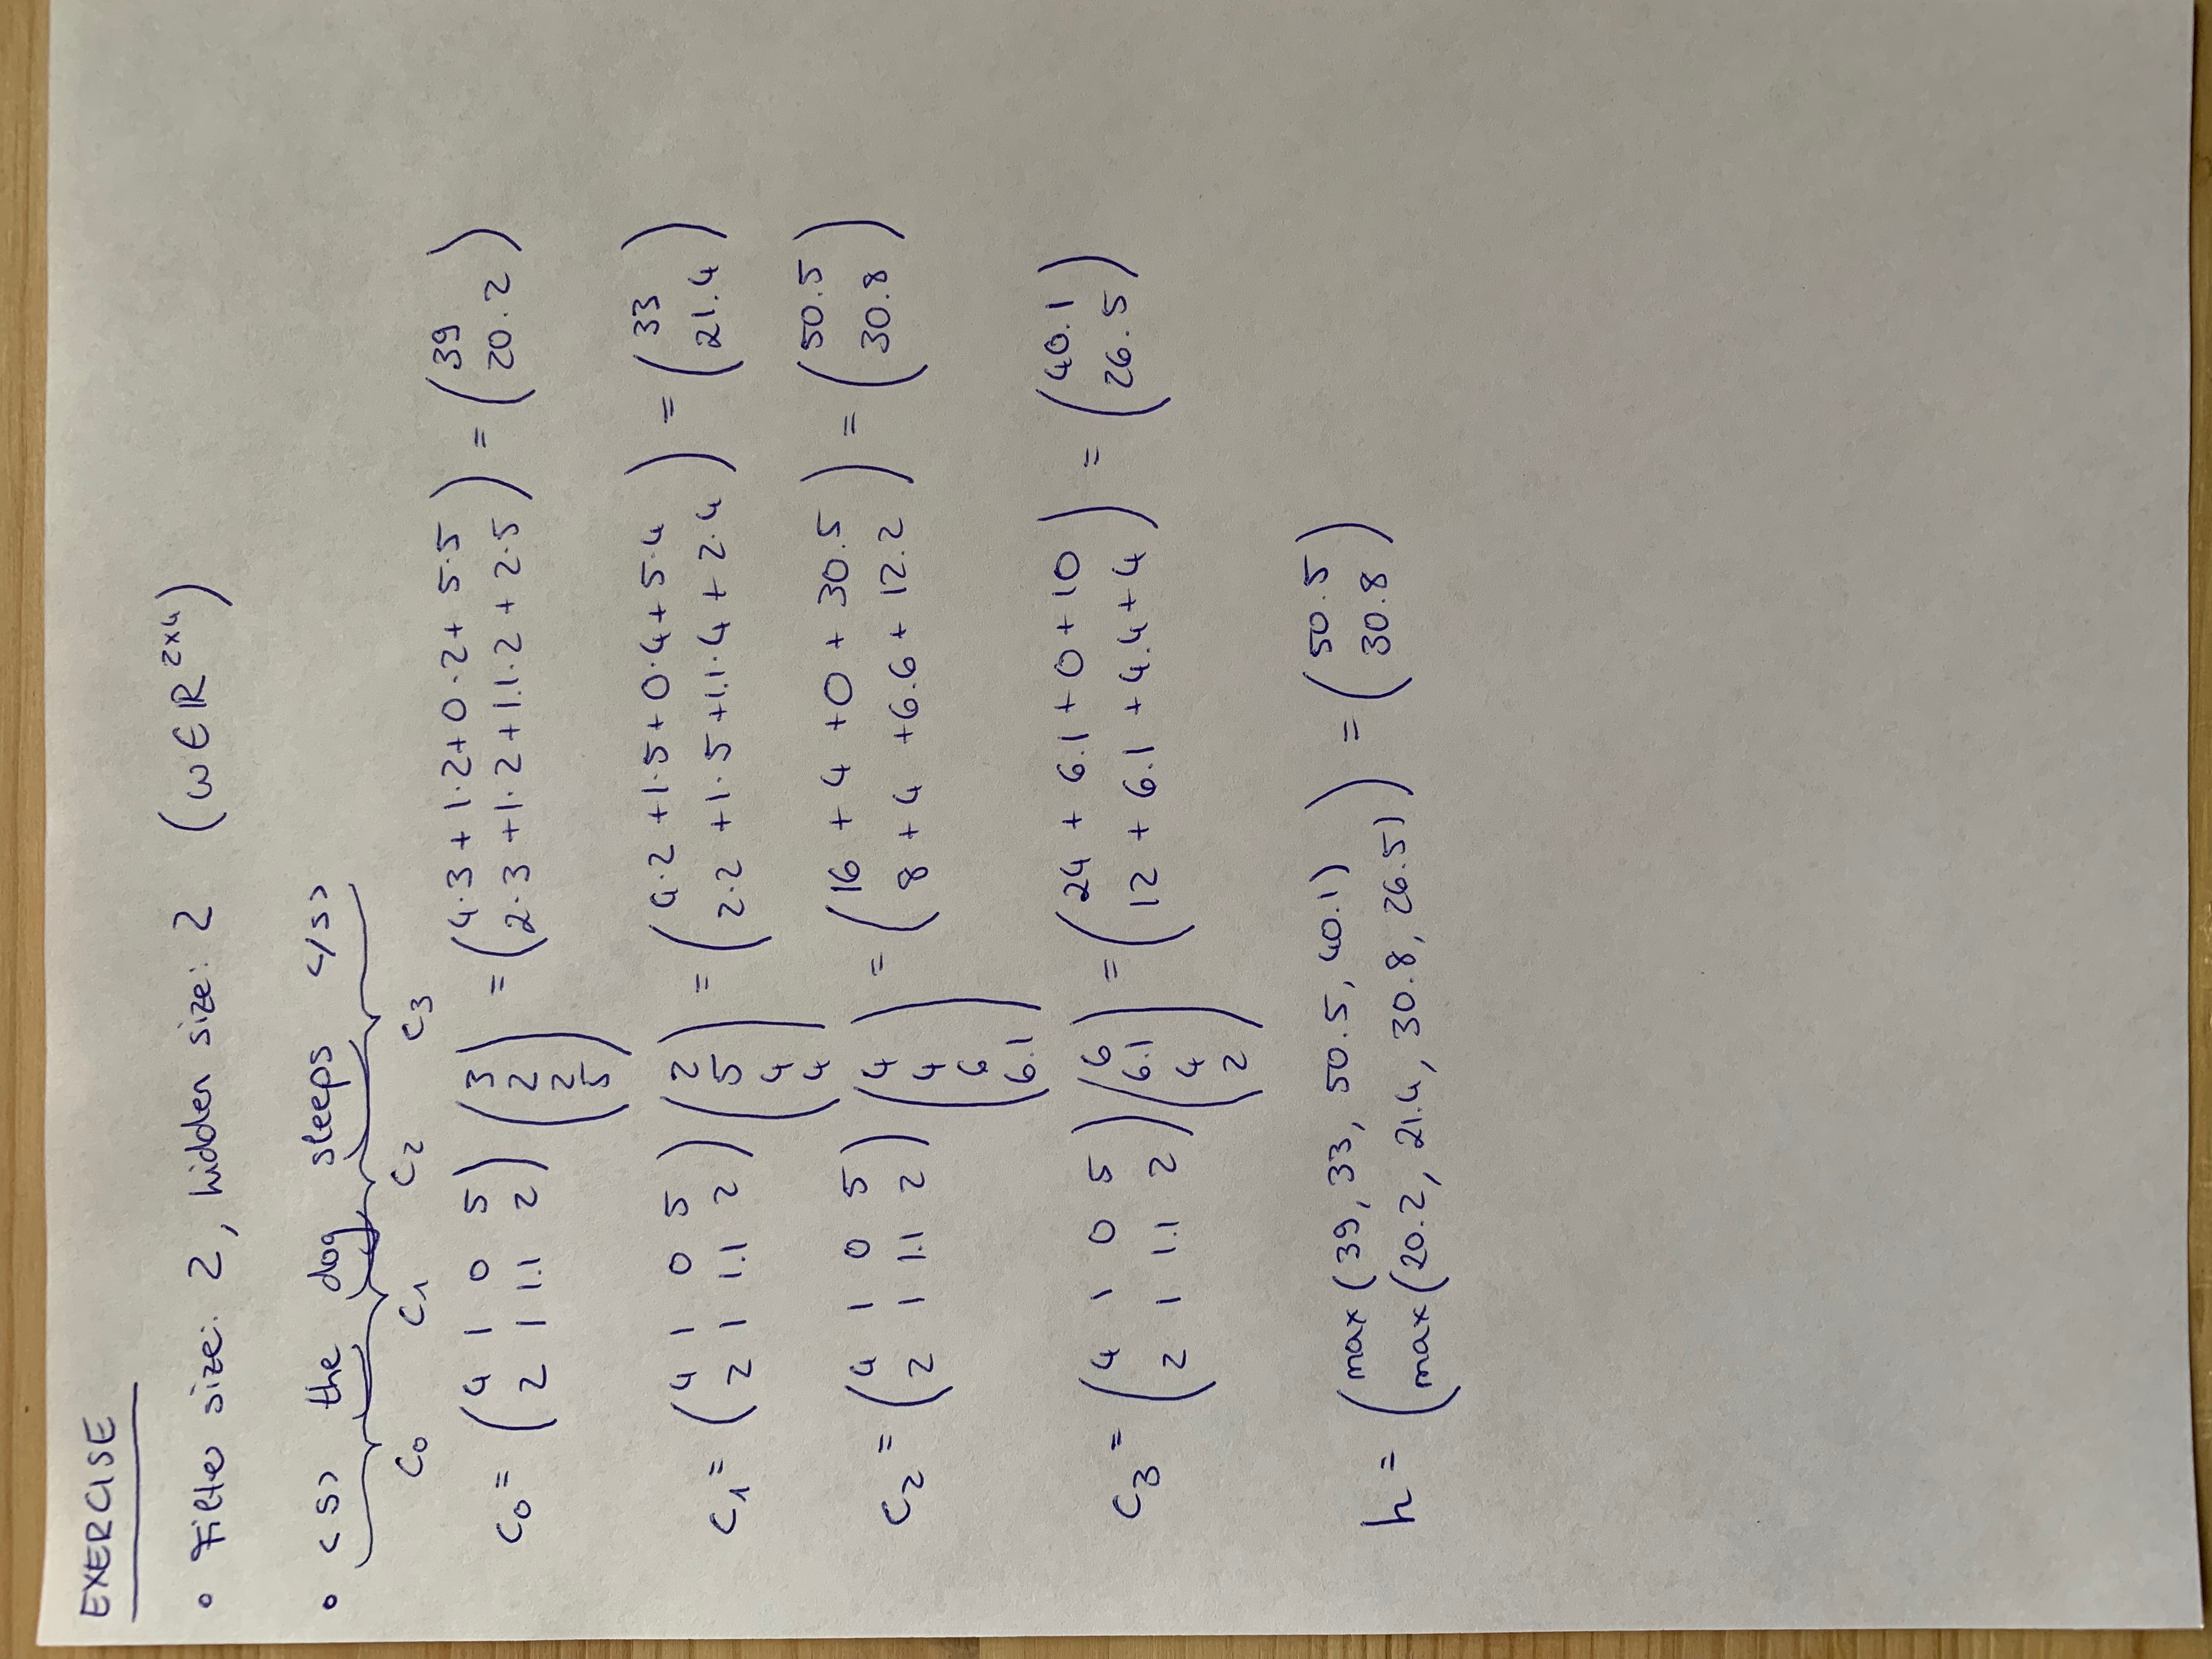 EXERCISE
• Filter size: 2, hidden size: 2 (W ∈ ℝ^2x4)
• <S> the dog sleeps </S>
c0 c1 c2 c3
c0 = (4 1 0 5 / 2 1 1.1 2) (3 / 2 / 2 / 5) = (4·3 + 1·2 + 0·2 + 5·5 / 2·3 + 1·2 + 1.1·2 + 2·5) = (39 / 20.2)
c1 = (4 1 0 5 / 2 1 1.1 2) (2 / 5 / 4 / 4) = (4·2 + 1·5 + 0·4 + 5·4 / 2·2 + 1·5 + 1.1·4 + 2·4) = (33 / 21.4)
c2 = (4 1 0 5 / 2 1 1.1 2) (4 / 4 / 6 / 6.1) = (16 + 4 + 0 + 30.5 / 8 + 4 + 6.6 + 12.2) = (50.5 / 30.8)
c3 = (4 1 0 5 / 2 1 1.1 2) (6 / 6.1 / 4 / 2) = (24 + 6.1 + 0 + 10 / 12 + 6.1 + 4.4 + 4) = (40.1 / 26.5)
h = (max(39, 33, 50.5, 40.1) / max(20.2, 21.4, 30.8, 26.5)) = (50.5 / 30.8)